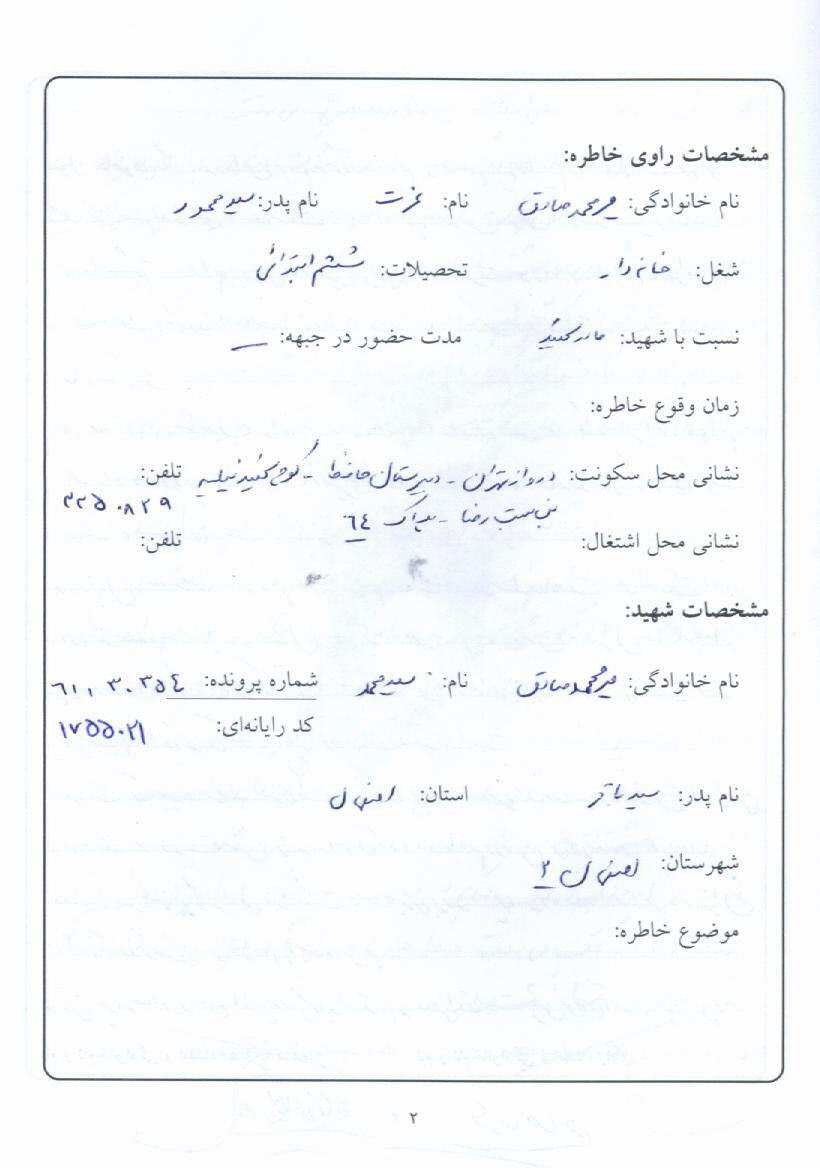 مشخصات راوی خاطره:
نام خانوادگی: میرمحمدصادقی نام: عزت نام پدر: سیدمحمود
شغل: خانه دار تحصیلات: ششم ابتدائی
نسبت با شهید: مادر شهید مدت حضور در جبهه: —
زمان وقوع خاطره:
نشانی محل سکونت: دروازه تهران - دبیرستان حافظ - کوی شهید تلفن:
بن بست رضا - پلاک ٦٤ ۳۳۵۰۸۲۹
نشانی محل اشتغال: تلفن:
مشخصات شهید:
نام خانوادگی: میرمحمدصادقی نام: سیدمحمد شماره پرونده: ٦١١٣٠٣٥٤
کد رایانه‌ای: ١٧٥٥٠٢١
نام پدر: سیدباقر استان: اصفهان
شهرستان: اصفهان ۲
موضوع خاطره:
۲